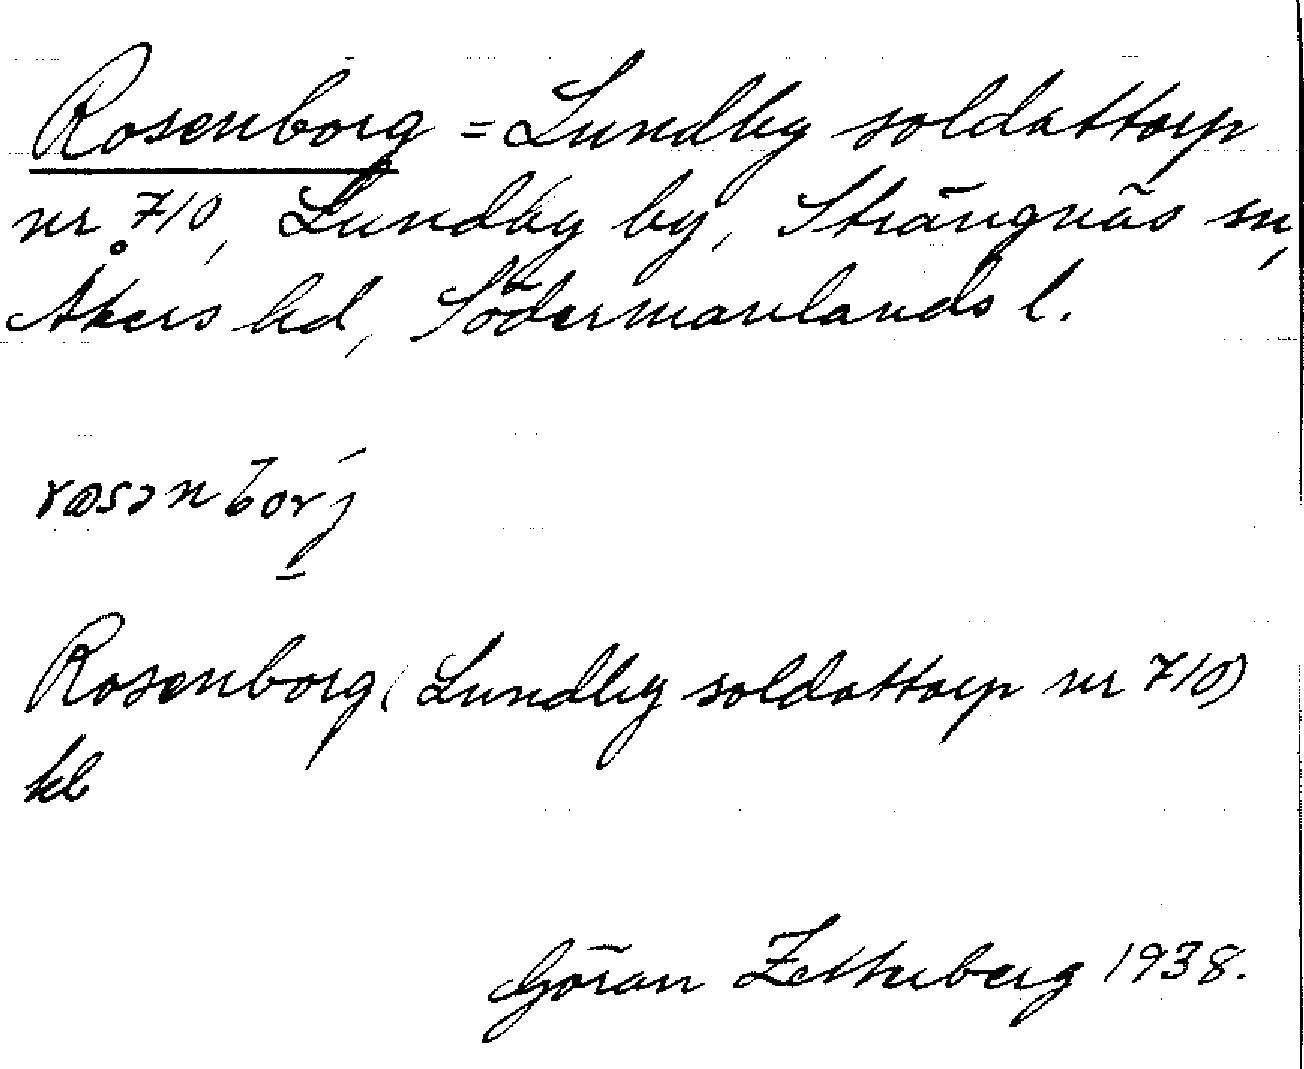 Rosenborg = Lundby soldattorp
nr 710, Lundby by, Strängnäs sn,
Åkers hd, Södermanlands l.
rosənborj
Rosenborg (Lundby soldattorp nr 710)
kb
Göran Zetterberg 1938.